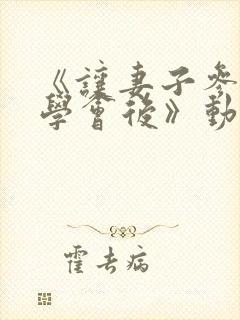 《讓妻子參
學會後》動
霍去病